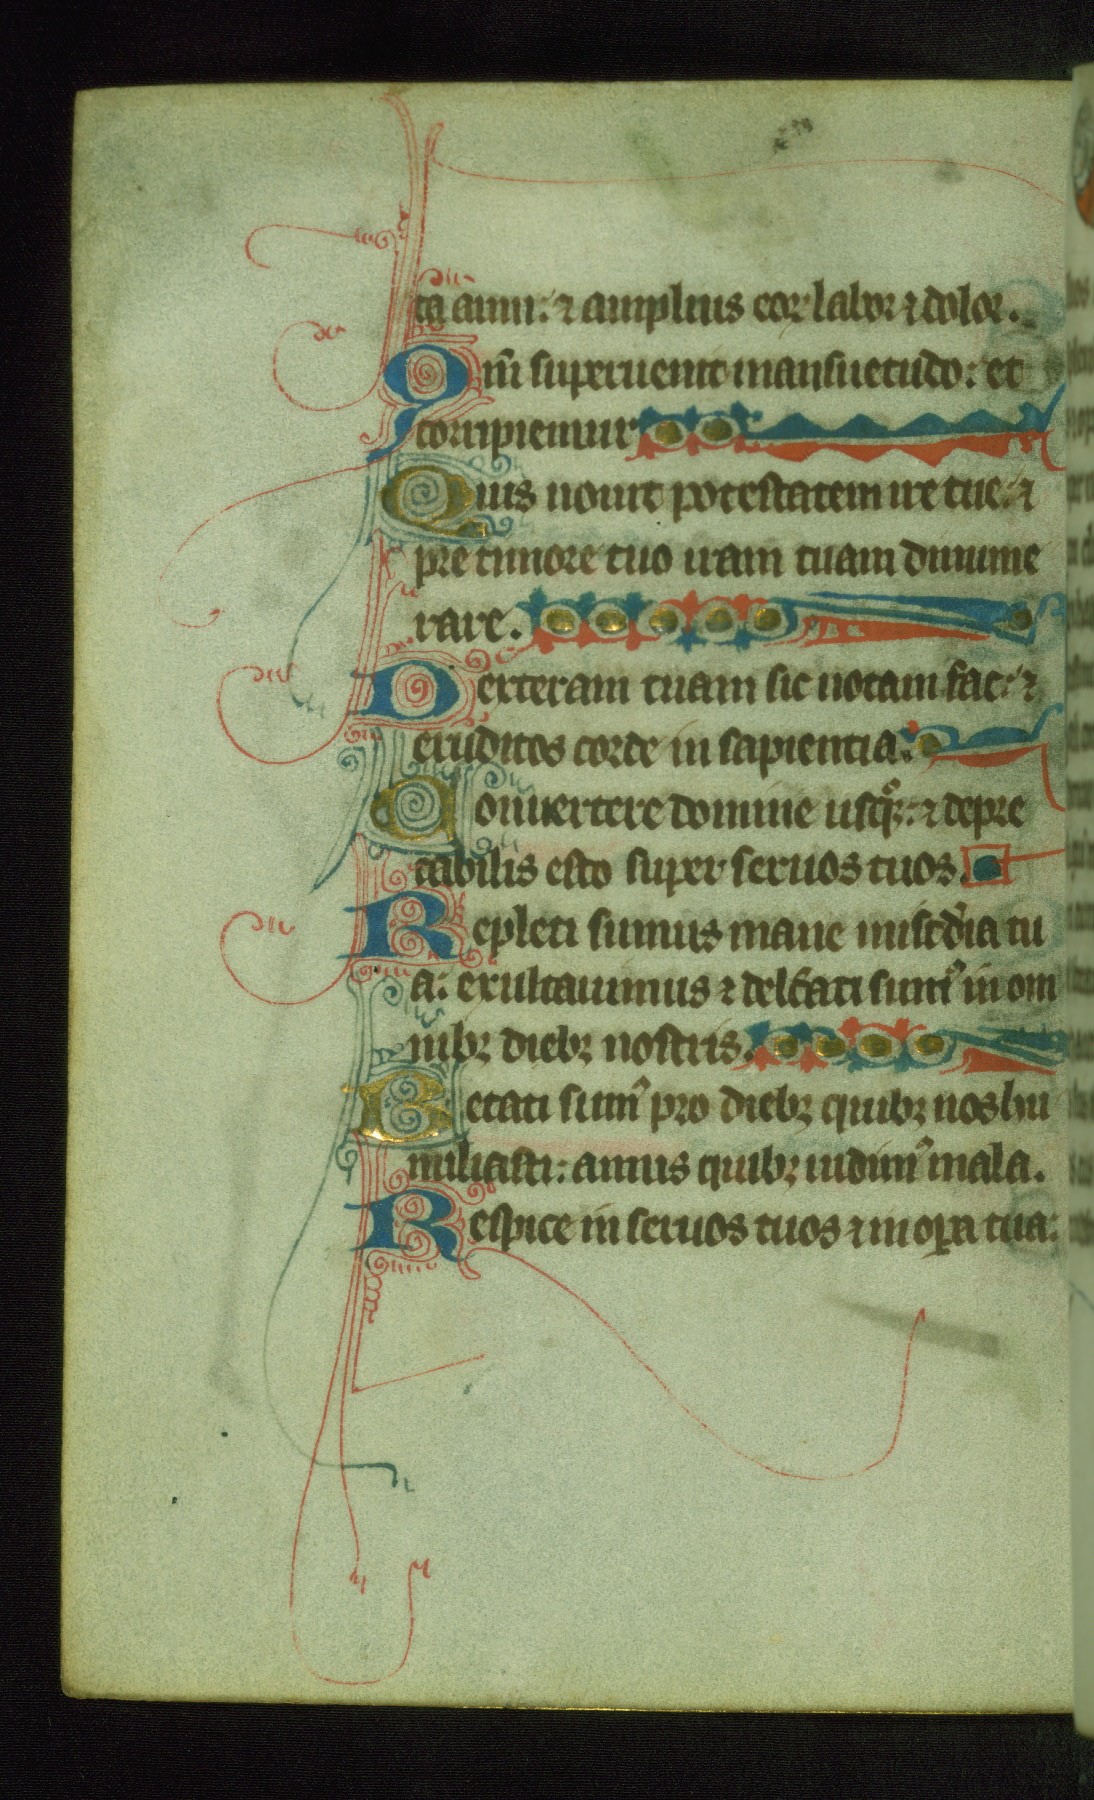 ta anni: ⁊ amplius eor labor ⁊ dolor.
Qm̄ superuenit mansuetudo: et
corripiemur
Quis nouit potestatem ire tue: ⁊
pre timore tuo iram tuam dinume
rare.
Dexteram tuam sic notam fac: ⁊
eruditos corde in sapientia.
Conuertere domine usq̄ꝫ: ⁊ depre
cabilis esto super seruos tuos.
Repleti sumus mane misc̄dia tu
a: exultauimus ⁊ delc̄ati sumꝰ in om
nibꝫ diebꝫ nostris.
Letati sumꝰ pro diebꝫ quibꝫ nos hu
miliasti: annis quibꝫ uidimꝰ mala.
Respice in seruos tuos ⁊ in oꝑa tua: